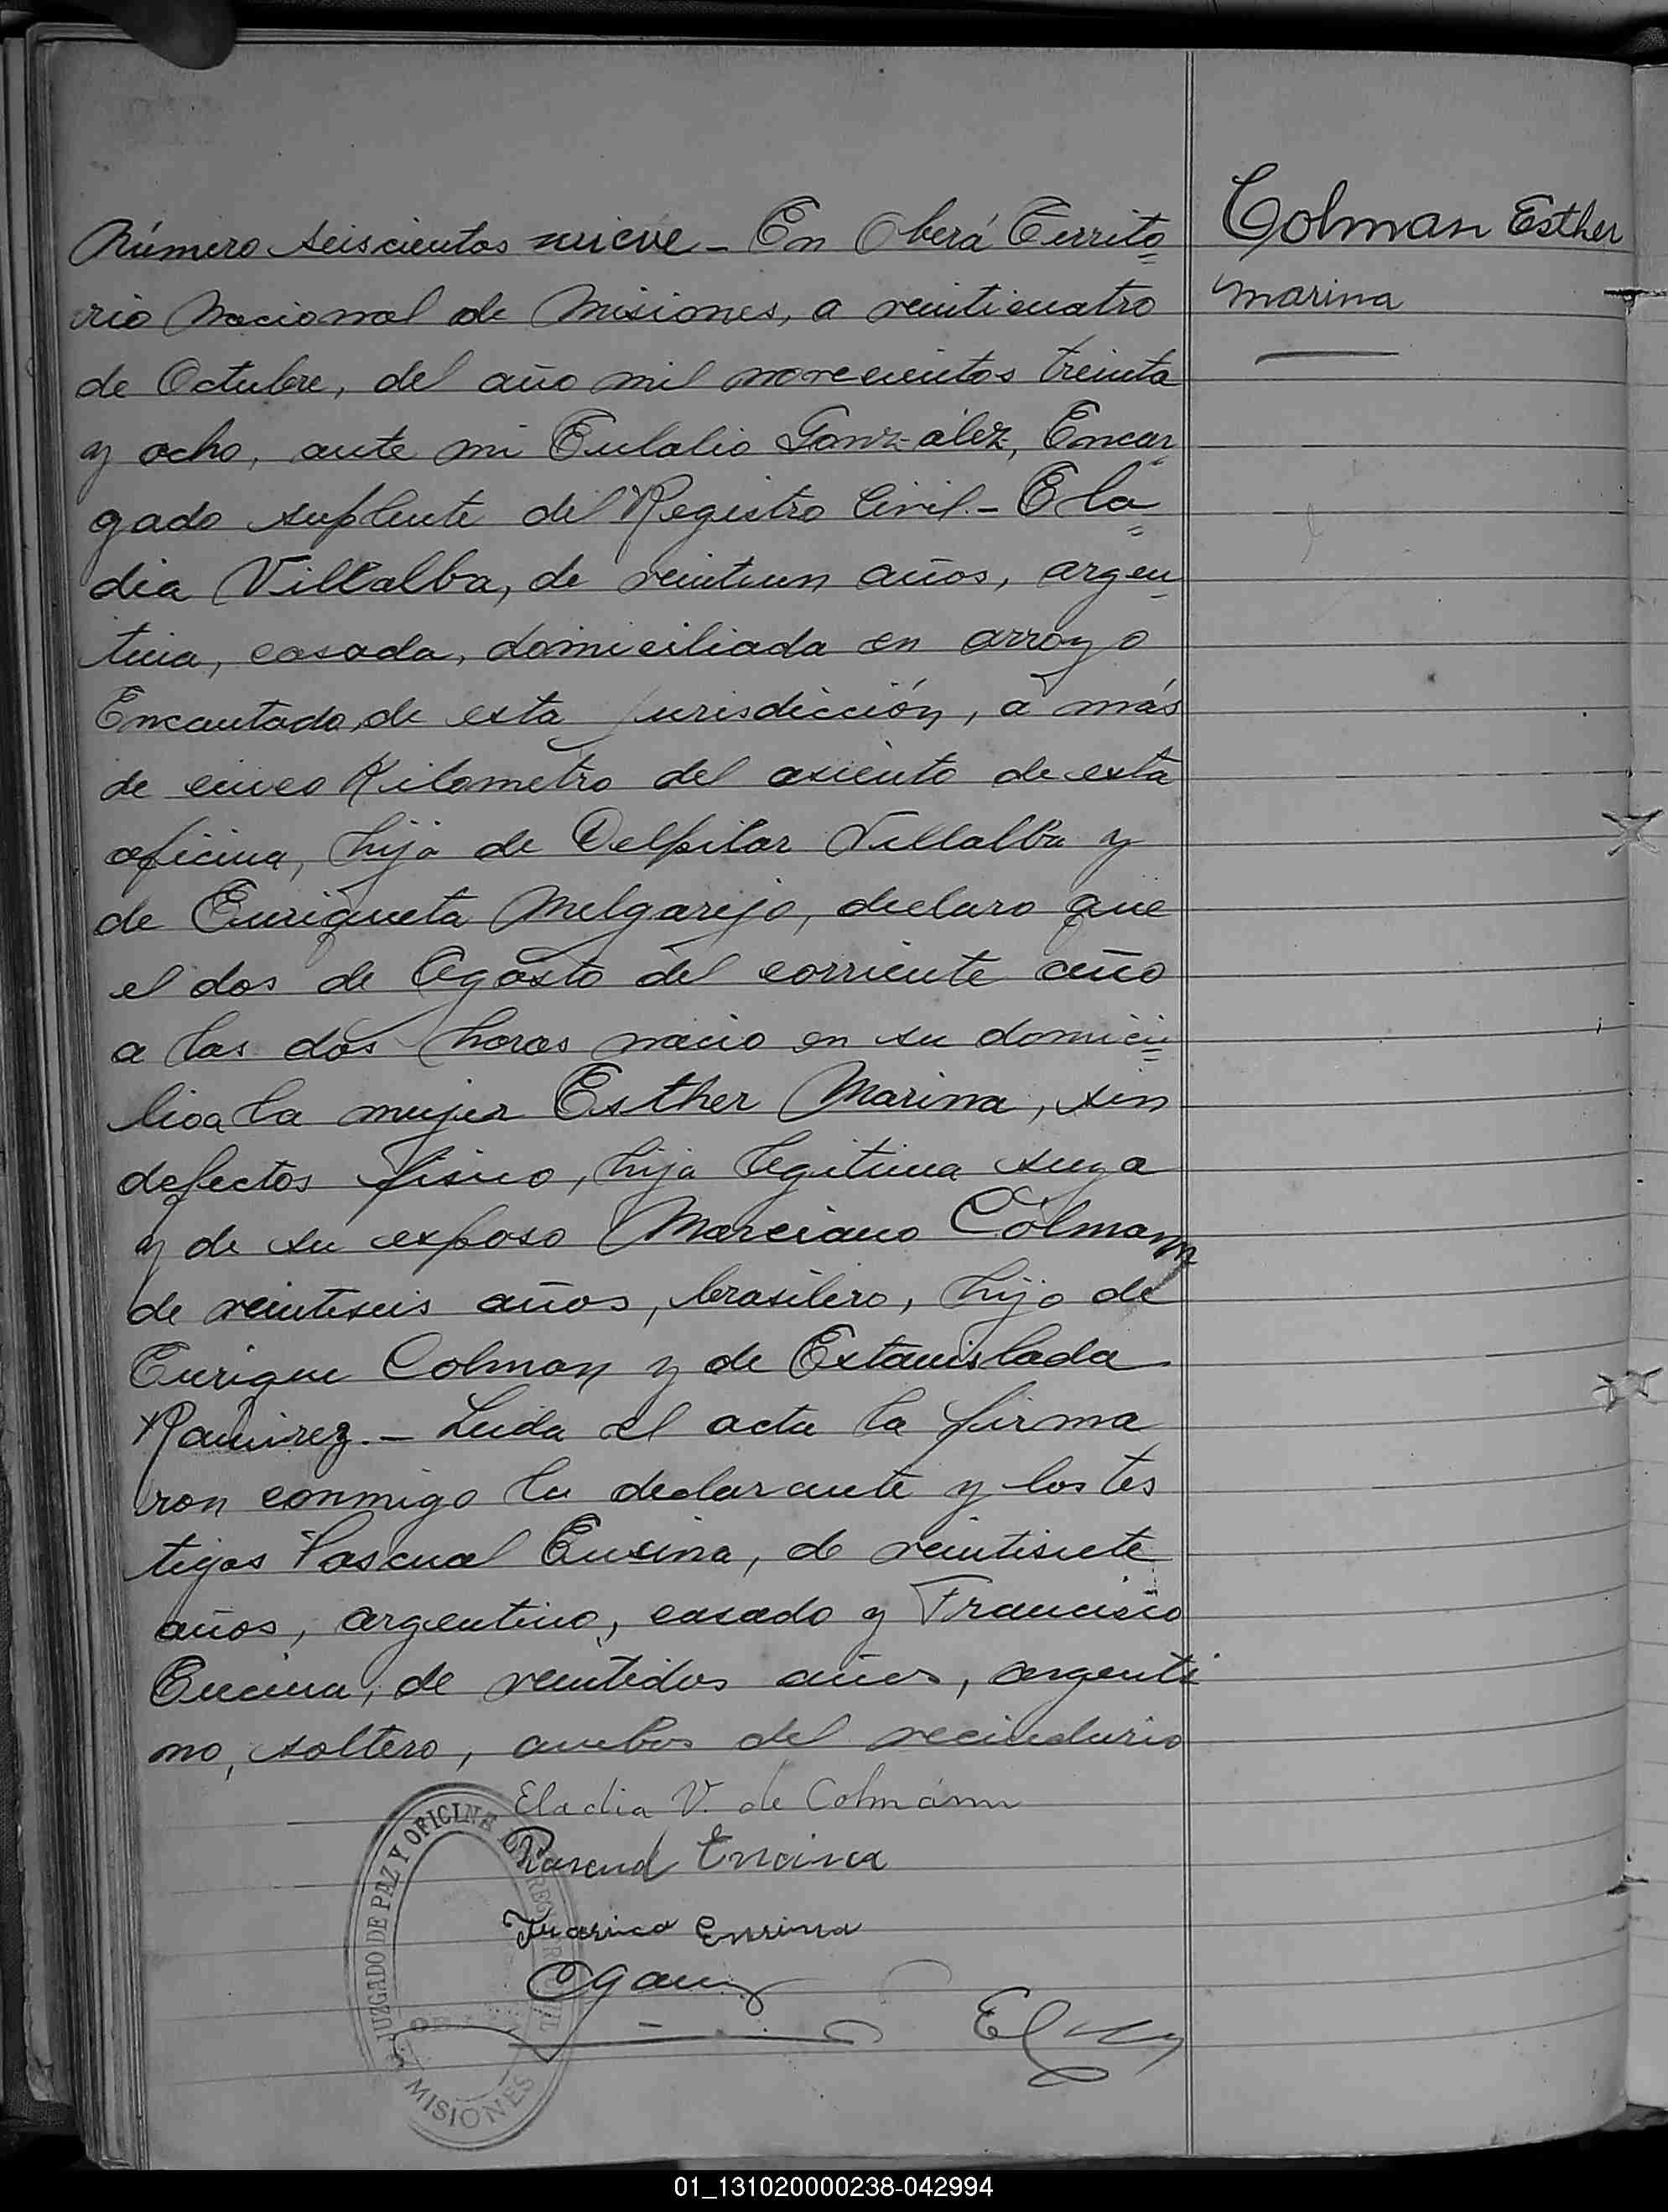 Número seiscientos nueve - En Oberá Territo=
rio Nacional de Misiones, a veinticuatro
de Octubre, del año mil novecientos treinta
y ocho, ante mi Eulalio González, Encar-
gado suplente del Registro Civil.- Ela=
dia Villalba, de veintiun años, argen-
tina, casada, domiciliada en arroyo
Encantado, de esta jurisdicción, a más
de cinco Kilometro del asiento de esta
oficina, hija de Delpilar Villalba y
de Enriqueta Melgarejo, declaro que
el dos de Agosto del corriente año
a las dos horas nacio en su domici=
lioa la mujer Esther Marina, sin
defectos fisico, hija legitima suya
y de su esposo Marciano Colmann
de veintiseis años, brasilero, hijo de
Enrique Colman y de Estanislada
Ramirez.- Leida el acta la firma
ron conmigo la declarante y los tes
tigos Pascual Ensina, de veintisiete
años, argentino, casado y Francisco
Encina, de veintidos años, argenti
no, soltero, ambos del vecindario
Colman Esther
Marina
Eladia V. de Colmánn
Encina
Ensina
JUZGADO DE PAZ Y OFICINA
MISIONES
01_131020000238-042994